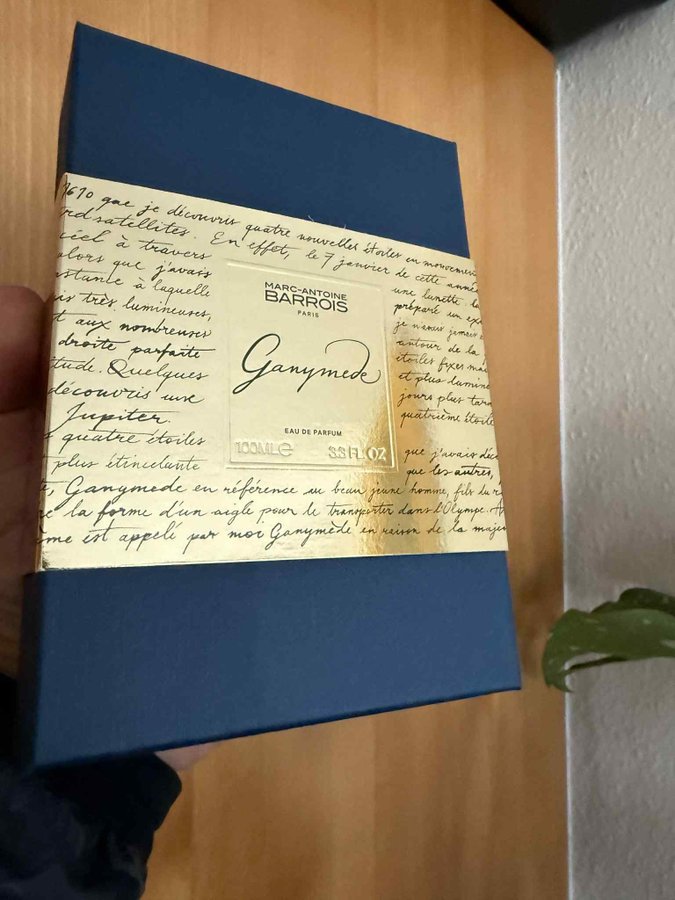 1610 que je découvris quatre nouvelles étoiles en mouvement
satellites. En effet, le 7 janvier de cette année
ciel à travers
une lunette.
alors que j'avais
préparé un
à laquelle
je n'avais jamais
très lumineuses,
autour de la
aux nombreuses
étoiles fixes
droite parfaite
et plus
Quelques
jours plus tard
découvris une
quatrième étoile
Jupiter.
quatre étoiles
que j'avais
plus étincelante
que les autres,
MARC-ANTOINE
BARROIS
PARIS
Ganymede
EAU DE PARFUM
100ML e 3.3 FL.OZ
Ganymede en référence au beau jeune homme, fils du
la forme d'un aigle pour le transporter dans l'Olympe.
est appelé par moi Ganymède en raison de la